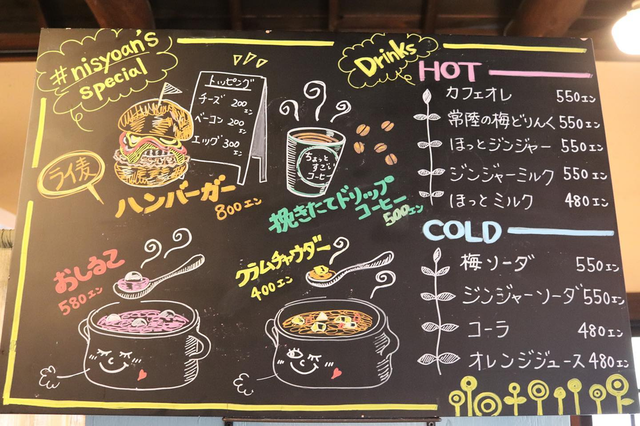 #nisyoan's
special
トッピング
チーズ 200エン
ベーコン 200エン
エッグ 300エン
ライ麦
ハンバーガー
800エン
ちょっと
すごい
コーヒー
挽きたてドリップ
コーヒー
500エン
おしるこ
580エン
クラムチャウダー
400エン
Drinks
HOT
カフェオレ 550エン
常陸の梅どりんく 550エン
ほっとジンジャー 550エン
ジンジャーミルク 550エン
ほっとミルク 480エン
COLD
梅ソーダ 550エン
ジンジャーソーダ 550エン
コーラ 480エン
オレンジジュース 480エン